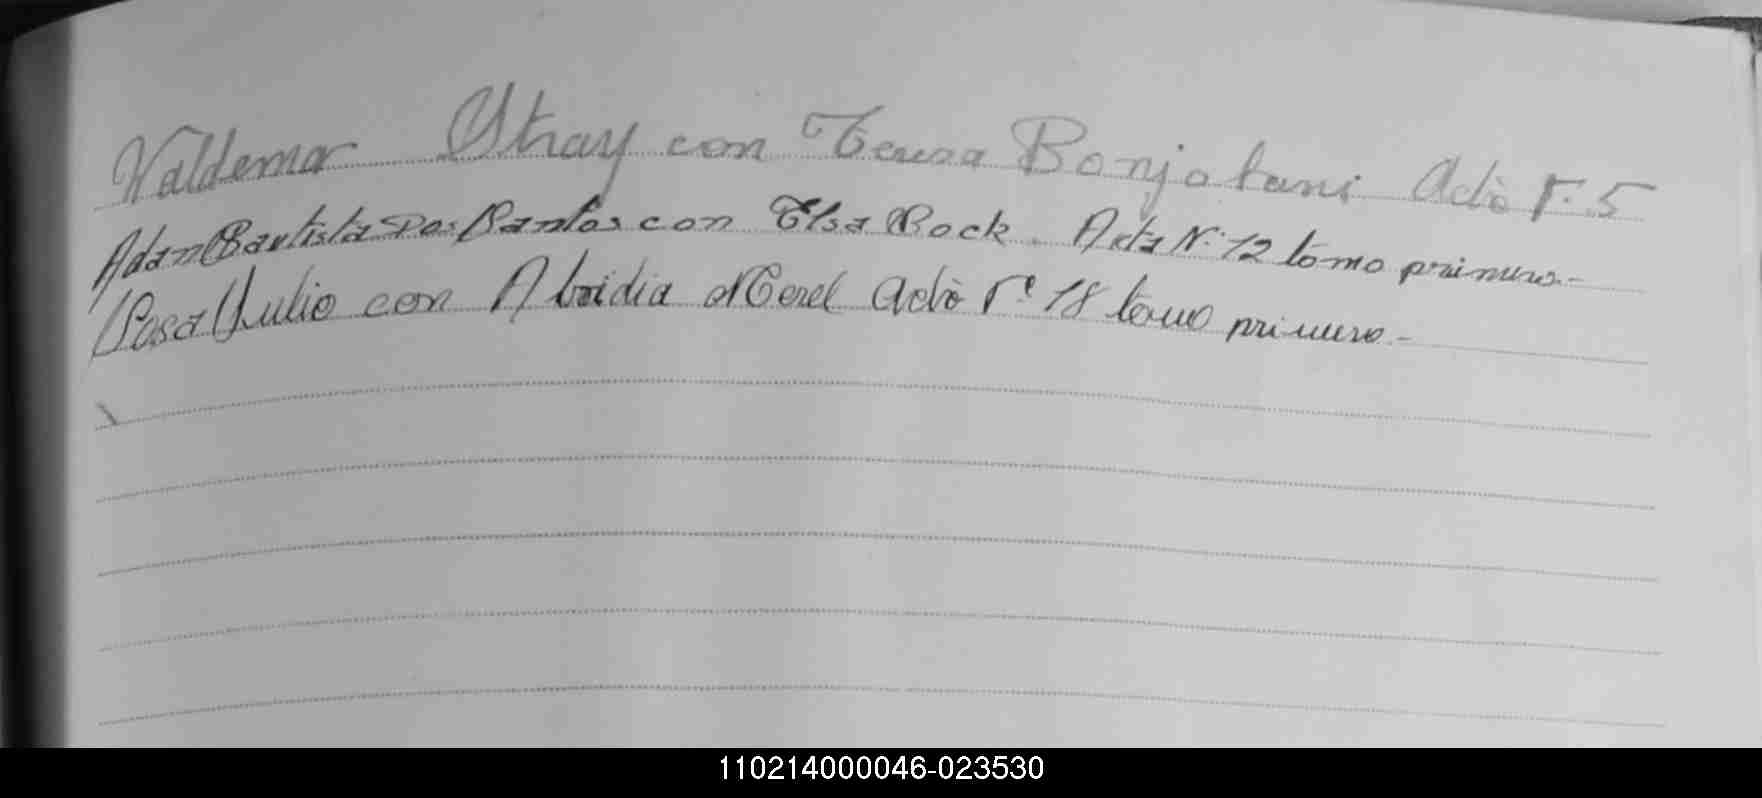 Valdemar Ythay con Teresa Bonjotani Acta Nº 5
Adan Bautista Dos Santos con Elsa Bock. Acta Nº 12 tomo primero.-
Rosa Julio con Alxidia Merel Acta Nº 18 tomo primero.-
110214000046-023530